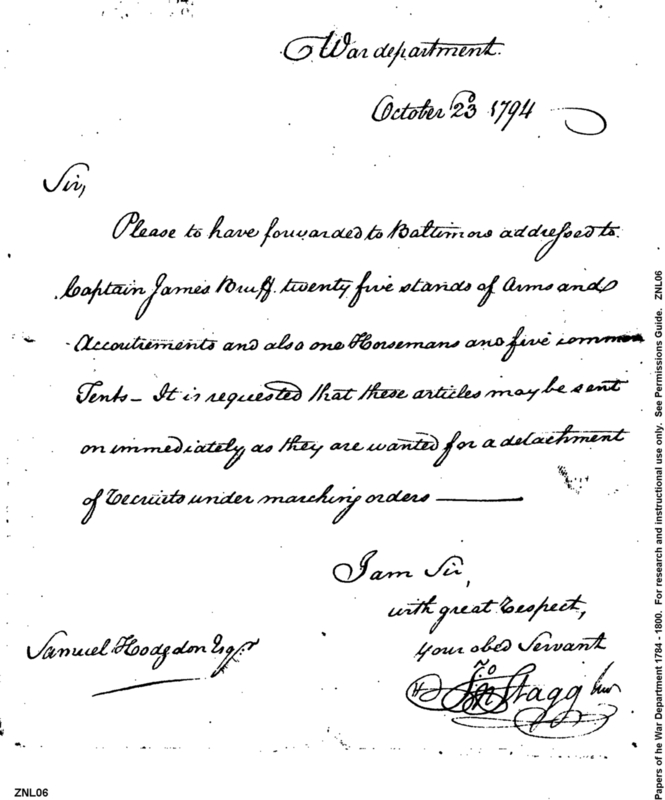 War department.
October 23d 1794
Sir,
Please to have forwarded to Baltimore addressed to
Captain James Bruff. twenty five stands of Arms and
Accoutrements and also one Horsemans and five common
Tents - It is requested that these articles may be sent
on immediately as they are wanted for a detachment
of recruits under marching orders
I am Sir,
with great respect,
your obed Servant
Jno Stagg Junr
Samuel Hodgdon Esqr
ZNL06
Papers of he War Department 1784 - 1800. For research and instructional use only. See Permissions Guide. ZNL06